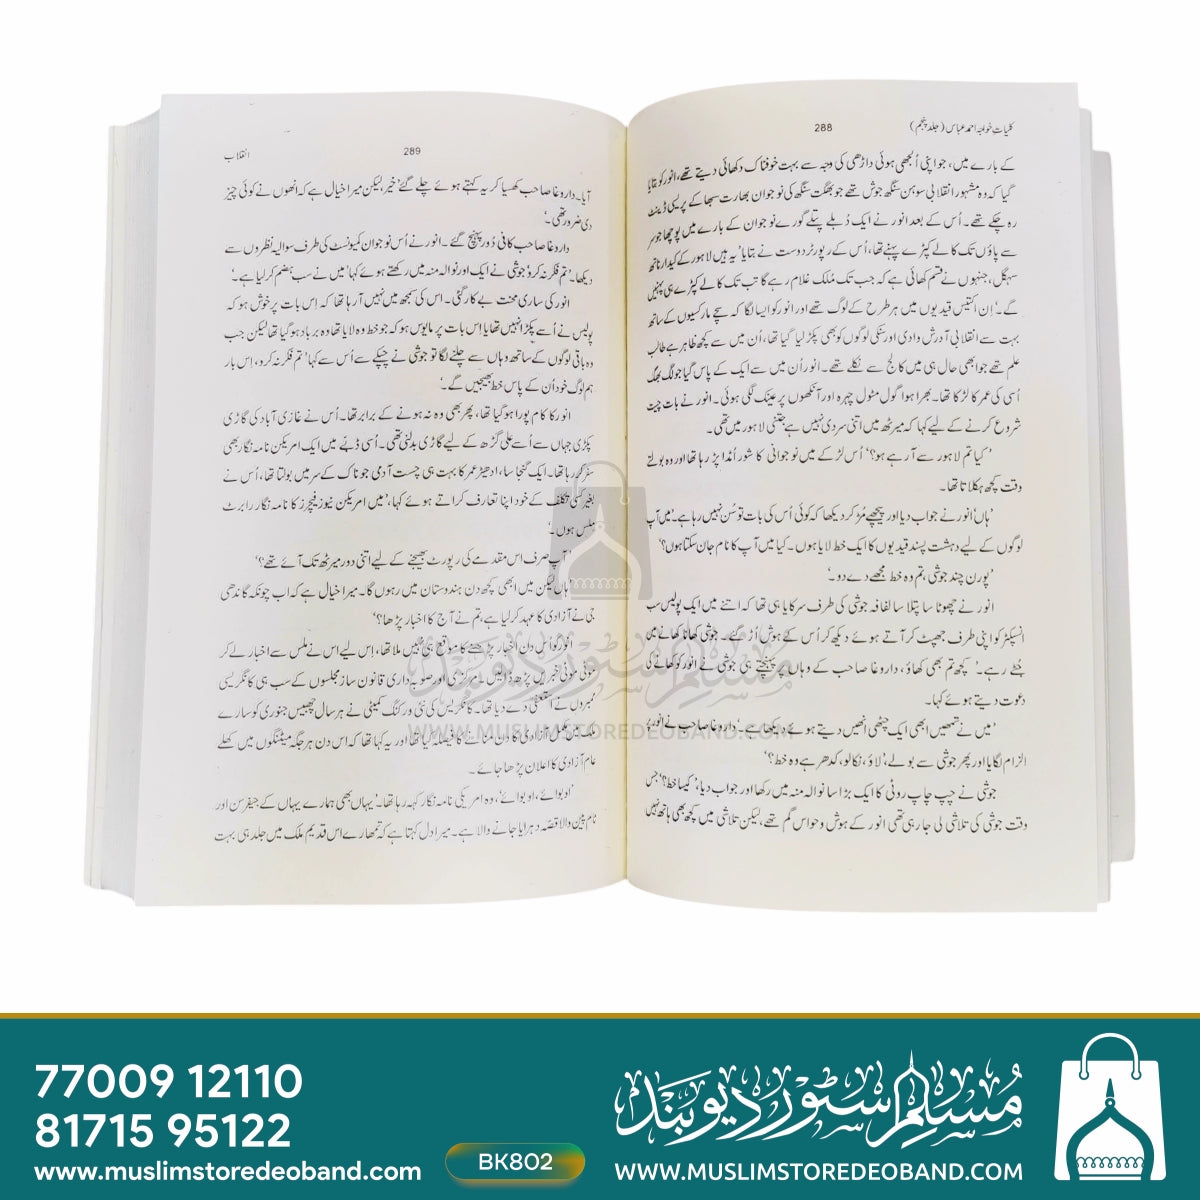 کلیاتِ خواجہ احمد عباس (جلد پنجم)
288
کے بارے میں، جو اپنی اُلجھی ہوئی داڑھی کی وجہ سے بہت خوفناک دکھائی دیتے تھے، انور کو بتایا
گیا کہ وہ مشہور انقلابی سوہن سنگھ جوش تھے جو بھگت سنگھ کی نوجوان بھارت سبھا کے پریسی ڈینٹ
رہ چکے تھے۔ اُس کے بعد انور نے ایک دُبلے پتلے گورے نوجوان کے بارے میں پوچھا جو سر
سے پاؤں تک کالے کپڑے پہنے تھا، اُس کے رپورٹر دوست نے بتایا 'یہ ہیں لاہور کے کیدار ناتھ
سہگل، جنہوں نے قسم کھائی ہے کہ جب تک مُلک غلام رہے گا تب تک کالے کپڑے ہی پہنیں
گے۔' اِن اکتیس قیدیوں میں ہر طرح کے لوگ تھے اور انور کو ایسا لگا کہ سچے مارکسیوں کے ساتھ
بہت سے انقلابی آدرش وادی اور سنکی لوگوں کو بھی پکڑ لیا گیا تھا، اُن میں سے کچھ ظاہر ہے طالب
علم تھے جو ابھی حال ہی میں کالج سے نکلے تھے۔ انور اُن میں سے ایک کے پاس گیا جو لگ بھگ
اُسی کی عمر کا لڑکا تھا۔ بھرا ہوا گول مٹول چہرہ اور آنکھوں پر عینک لگی ہوئی۔ انور نے بات چیت
شروع کرنے کے لیے کہا کہ میرٹھ میں اتنی سردی نہیں ہے جتنی لاہور میں تھی۔
'کیا تم لاہور سے آ رہے ہو؟' اُس لڑکے میں نوجوانی کا شور اُمڈا پڑ رہا تھا اور وہ بولتے
وقت کچھ ہکلاتا تھا۔
'ہاں' انور نے جواب دیا اور پیچھے مُڑ کر دیکھا کہ کوئی اُس کی بات تو سُن نہیں رہا ہے۔ 'میں آپ
لوگوں کے لیے دہشت پسند قیدیوں کا ایک خط لایا ہوں۔ کیا میں آپ کا نام جان سکتا ہوں؟'
'پورن چند جوشی، تم وہ خط مجھے دے دو۔'
انور نے چھوٹا سا پتلا سا لفافہ جوشی کی طرف سرکایا ہی تھا کہ اتنے میں ایک پولیس سب
انسپکٹر کو اپنی طرف جھپٹ کر آتے ہوئے دیکھ کر اُس کے ہوش اُڑ گئے۔ جوشی کھانا کھانے میں
جُٹے رہے۔ 'کچھ تم بھی کھاؤ، داروغا صاحب کے وہاں پر پہنچتے ہی جوشی نے انور کو کھانے کی
دعوت دیتے ہوئے کہا۔
'میں نے تمھیں ابھی ایک چٹھی انھیں دیتے ہوئے دیکھا ہے۔' داروغا صاحب نے انور پر
الزام لگایا اور پھر جوشی سے بولے، 'لاؤ، نکالو، کدھر ہے وہ خط؟'
جوشی نے چپ چاپ روٹی کا ایک بڑا سا نوالہ منہ میں رکھا اور جواب دیا، 'کیسا خط؟' جس
وقت جوشی کی تلاشی لی جا رہی تھی انور کے ہوش و حواس گم تھے، لیکن تلاشی میں کچھ بھی ہاتھ نہیں
289
انقلاب
آیا۔ داروغا صاحب کھسیا کر یہ کہتے ہوئے چلے گئے 'خیر، لیکن میرا خیال ہے کہ انھوں نے کوئی چیز
دی ضرور تھی۔'
داروغا صاحب کافی دُور پہنچ گئے۔ انور نے اُس نوجوان کمیونسٹ کی طرف سوالیہ نظروں سے
دیکھا۔ 'تم فکر نہ کرو' جوشی نے ایک اور نوالہ منہ میں رکھتے ہوئے کہا 'میں نے سب ہضم کر لیا ہے۔'
انور کی ساری محنت بے کار گئی۔ اس کی سمجھ میں نہیں آ رہا تھا کہ اِس بات پر خوش ہو کہ
پولیس نے اُسے پکڑا نہیں تھا یا اِس بات پر مایوس ہو کہ جو خط وہ لایا تھا وہ برباد ہو گیا تھا لیکن جب
وہ باقی لوگوں کے ساتھ وہاں سے چلنے لگا تو جوشی نے چپکے سے اُس سے کہا 'تم فکر نہ کرو، اِس بار
ہم لوگ خود اُن کے پاس خط بھیجیں گے۔'
انور کا کام پورا ہو گیا تھا، پھر بھی وہ نہ ہونے کے برابر تھا۔ اُس نے غازی آباد کی گاڑی
پکڑی جہاں سے اُسے علی گڑھ کے لیے گاڑی بدلنی تھی۔ اُسی ڈبّے میں ایک امریکن نامہ نگار بھی
سفر کر رہا تھا۔ ایک گنجا سا، ادھیڑ عمر کا بہت ہی چست آدمی جو ناک کے سر میں بولتا تھا، اُس نے
بغیر کسی تکلف کے خود اپنا تعارف کراتے ہوئے کہا، 'میں امریکن نیوز فیچرز کا نامہ نگار رابرٹ
ملس ہوں۔'
'آپ صرف اس مقدمے کی رپورٹ بھیجنے کے لیے اتنی دور میرٹھ تک آئے تھے؟'
'ہاں لیکن میں ابھی کچھ دن ہندوستان میں رہوں گا۔ میرا خیال ہے کہ اب چونکہ گاندھی
جی نے آزادی کا عہد کر لیا ہے، تم نے آج کا اخبار پڑھا؟'
انور کو اُس دن اخبار پڑھنے کا موقع ہی نہیں ملا تھا، اِس لیے اُس نے ملس سے اخبار لے کر
موٹی موٹی خبریں پڑھ ڈالیں۔ مرکزی اور صوبے داری قانون ساز مجلسوں کے سب ہی کانگریسی
ممبروں نے استعفیٰ دے دیا تھا۔ کانگریس کی نئی ورکنگ کمیٹی نے ہر سال چھبیس جنوری کو سارے
آزادی کا دن منانے کا فیصلہ کیا تھا اور یہ کہا تھا کہ اس دن ہر جگہ میٹنگوں میں کھلے
عام آزادی کا اعلان پڑھا جائے۔
'او بوائے، او بوائے'، وہ امریکی نامہ نگار کہہ رہا تھا۔ 'یہاں بھی ہمارے یہاں کے جیفرسن اور
ٹام پین والا قصّہ دہرایا جانے والا ہے۔ میرا دل کہتا ہے کہ تمھارے اس قدیم ملک میں جلد ہی بہت
مسلم سٹور دیوبند
WWW.MUSLIMSTOREDEOBAND.COM
77009 12110
81715 95122
www.muslimstoredeoband.com
BK802
مسلم سٹور دیوبند
WWW.MUSLIMSTOREDEOBAND.COM